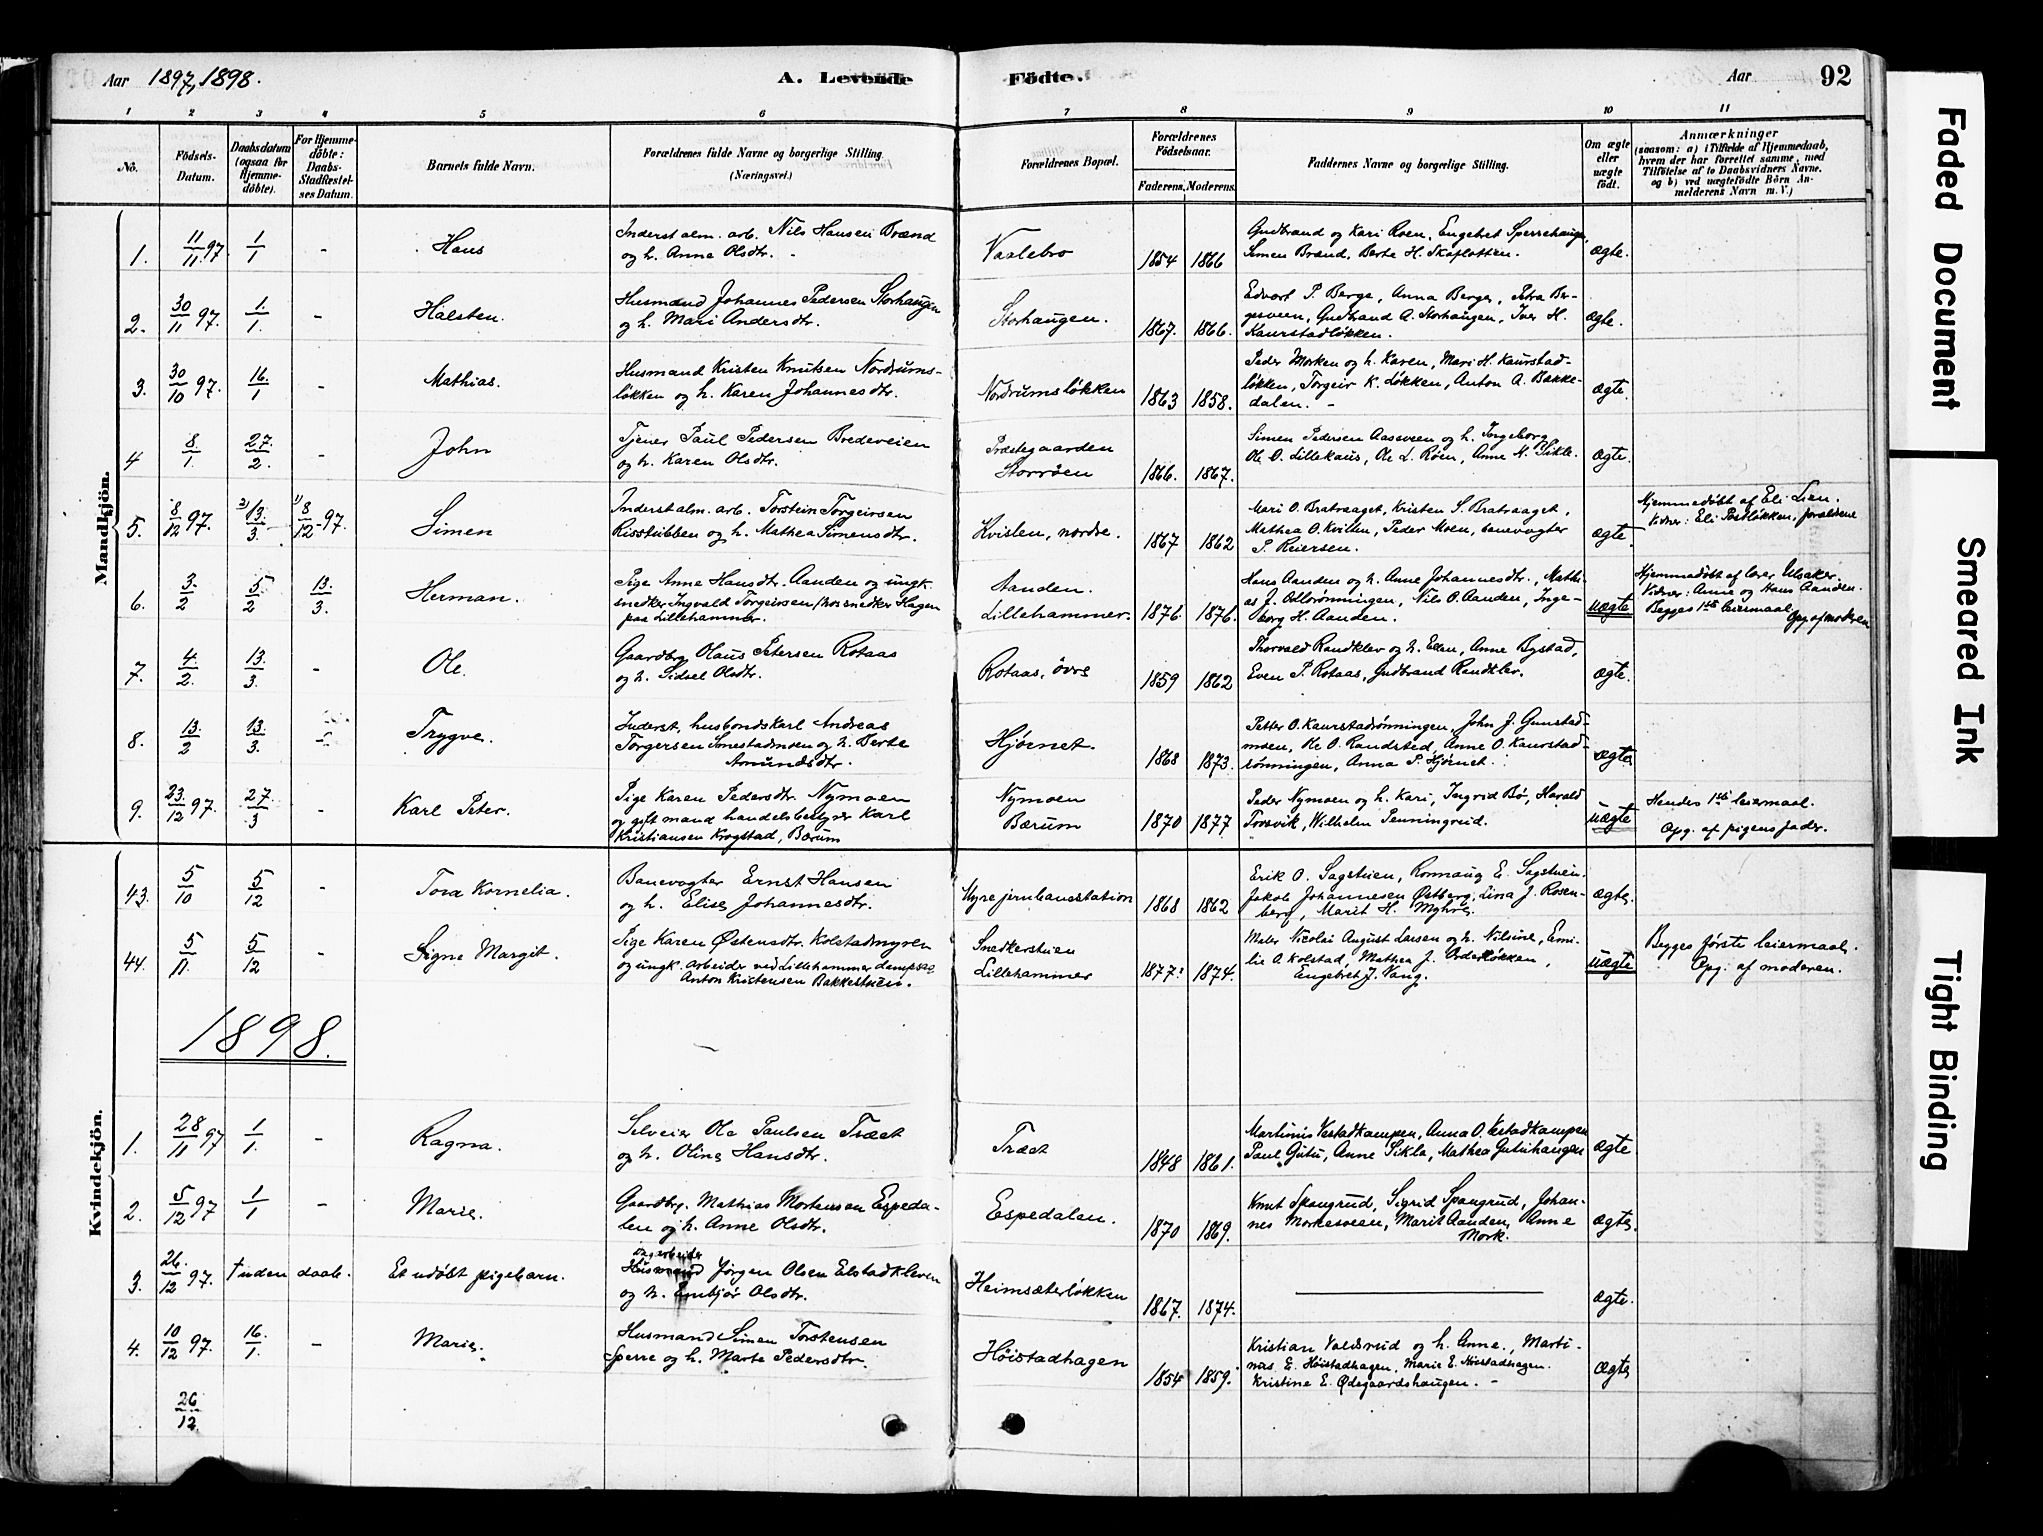 Aar 1897, 1898.
A. Levende Födte.
Aar
92
1 2 3 4 5 6 7 8 9 10 11
No.
Födsels-Datum.
Daabsdatum (ogsaa for Hjemme-döbte).
For Hjemme-döbte: Daabs-Stadfæstel-ses Datum.
Barnets fulde Navn.
Forældrenes fulde Navne og borgerlige Stilling.
(Næringsvei.)
Forældrenes Bopæl.
Forældrenes Födselsaar.
Faderens. Moderens.
Faddernes Navne og borgerlige Stilling.
Om ægte eller uægte födt.
Anmærkninger
(saasom: a) i Tilfælde af Hjemmedaab, hvem der har forrettet samme, med Tilföielse af to Daabsvidners Navne, og b) ved uægtefödte Börn An-melderens Navn m. V.)
Mandkjön.
1. 11/11 97 1/1 - Hans
Inderst alm. arb. Nils Hansen Brænd
og h. Anne Olsdtr. -
Vaslebro 1854 1866
Gudbrand og Kari Roen, Engebret Sperrehaugen,
Simen Brænd, Berte H. Skaflotten.
ægte.
2. 30/11 97. 1/1. - Halsten.
Husmand Johannes Pedersen Storhaugen
og h. Mari Andersdtr.
Storhaugen. 1867. 1866.
Edvart P. Berge, Anna Berge, Petra Ber-
gesveen, Gudbrand A. Storhaugen, Iver H.
Kaurstadløkken.
ægte.
3. 30/10 97. 16/1 - Mathias.
Husmand Kristen Knutsen Nordrums-
løkken og h. Karen Johannesdtr.
Nordrumsløkken 1863 1858.
Peder Morken og h. Karen, Mari H. Kaurstad-
løkken, Torgeir K. Løkken, Anton A. Bakke-
dalen. -
ægte.
4 8/1. 27/2. - John
Tjener Paul Pedersen Bredeveien
og h. Karen Olsdtr.
Præstegaarden
Storrøen 1866. 1867.
Simen Pedersen Aasveen og h. Ingeborg
Ole O. Lillekaus, Ole L. Røen, Anne N. Sikle.
ægte.
5. 8/12 97. 2) 13/3 1) 8/12 -97. Simen
Inderst alm. arb. Torstein Torgeirsen
Risstubben og h. Mathea Simensdtr.
Kvislen, nordre. 1867 1862
Mari O. Bratraaget, Kristen S. Bratraaget,
Mathea O. Kvillen, Peder Moen, banevogter
P. Reiersen.
ægte.
Hjemmedøbt af Eli Lien.
Vidner: Eli Postløkken, forældrene
6. 3/2 5/2 13/3. Herman.
Pige Anne Hansdtr. Aanden og ungk.
snedker Ingvald Torgeirsen, hos snedker Hagen
paa Lillehammer.
Aanden.
Lillehammer. 1876. 1876.
Hans Aanden og h. Anne Johannesdtr., Mathi-
as J. Odlorønningen, Nils O. Aanden, Inge-
borg H. Aanden.
uægte
Hjemmedøbt af lærer Ulsaker.
Vidner: Anne og Hans Aanden.
Begges 1ste leiermaal. Opg. af moderen
7. 4/2. 13/3. - Ole.
Gaardbr. Olaus Petersen Rotaas
og h. Sidsel Olsdtr.
Rotaas, øvre 1859 1862
Thorvald Randklev og h. Ellen, Anne Bystad,
Even P. Rotaas, Gudbrand Randklev.
ægte.
8. 13/2 13/3. - Trygve.
Inderst, husbondskarl Andreas
Torgersen Sonestadmoen og h. Berte
Amundsdtr.
Hjørnet. 1868 1873.
Petter O. Kaurstadrønningen, John J. Gunstad-
moen, Ole O. Randsted, Anne O. Kaurstad-
rønningen, Anna P. Hjørnet.
ægte.
9. 23/12 97. 27/3 - Karl Peter.
Pige Karen Pedersdtr. Nymoen
og gift mand handelsbestyrer Karl
Kristiansen Krogstad, Bærum
Nymoen
Bærum 1870 1877
Peder Nymoen og h. Kari, Ingrid Bø, Harald
Torsvik, Wilhelm Penningrud.
uægte
Hendes 1ste leiermaal.
Opg. af pigens fader.
43. 5/10 5/12 - Tora Kornelia.
Banevogter Ernst Hansen
og h. Elise Johannesdtr.
Hyre jernbanestation 1868 1862
Erik O. Sagstuen, Ronnaug E. Sagstuen.
Jakob Johannesen Østberg, Lina J. Rosen-
berg, Marit H. Myhre.
ægte.
44. 5/11. 5/12 Signe Margit.
Pige Karen Østensdtr. Kolstadmyren
og ungk. arbeider ved Lillehammer dampsag
Anton Kristensen Bakkestuen.
Snedkerstuen
Lillehammer 1877? 1874.
Maler Nicolai August Larsen og h. Nilsine, Emi-
lie A. Kolstad, Mathea J. Orderløkken,
Engebret J. Vang.
uægte
Begges første leiermaal.
Opg. af moderen.
1898.
Kvindekjön.
1. 28/11 97 1/1. - Ragna.
Selveier Ole Paulsen Træet
og h. Oline Hansdtr.
Træet 1848 1861.
Martinus Vestadkampen, Anna O. Vestadkampen
Paul Gutu, Anne Sikla, Mathea Gutuhaugen
ægte
2. 5/12 97 1/1 - Marie.
Gaardbr. Mathias Mortensen Espeda-
len og h. Anne Olsdtr.
Espedalen. 1870 1869.
Knut Spangrud, Sigrid Spangrud, Johan-
nes Morkesveen, Marit Aanden, Anne
Mork.
ægte.
3. 26/12 97. † uden daab. Et udøbt pigebarn.
Dagarbeider
Husmand Jørgen Olsen Elstadkleven
og h. Embjør Olsdtr.
Heimsæterløkken 1867. 1874.
ægte.
4. 10/12 97. 16/1. - Marie.
Husmand Simen Torstensen
Sperre og h. Marte Pedersdtr.
Høistadhagen 1854 1859.
Kristian Voldsrud og h. Anne, Marti-
nus E. Høistadhagen, Marie E. Høistadhagen.
Kristine E. Ødegaardshaugen. -
ægte
26/12
Faded Document
Smeared Ink
Tight Binding